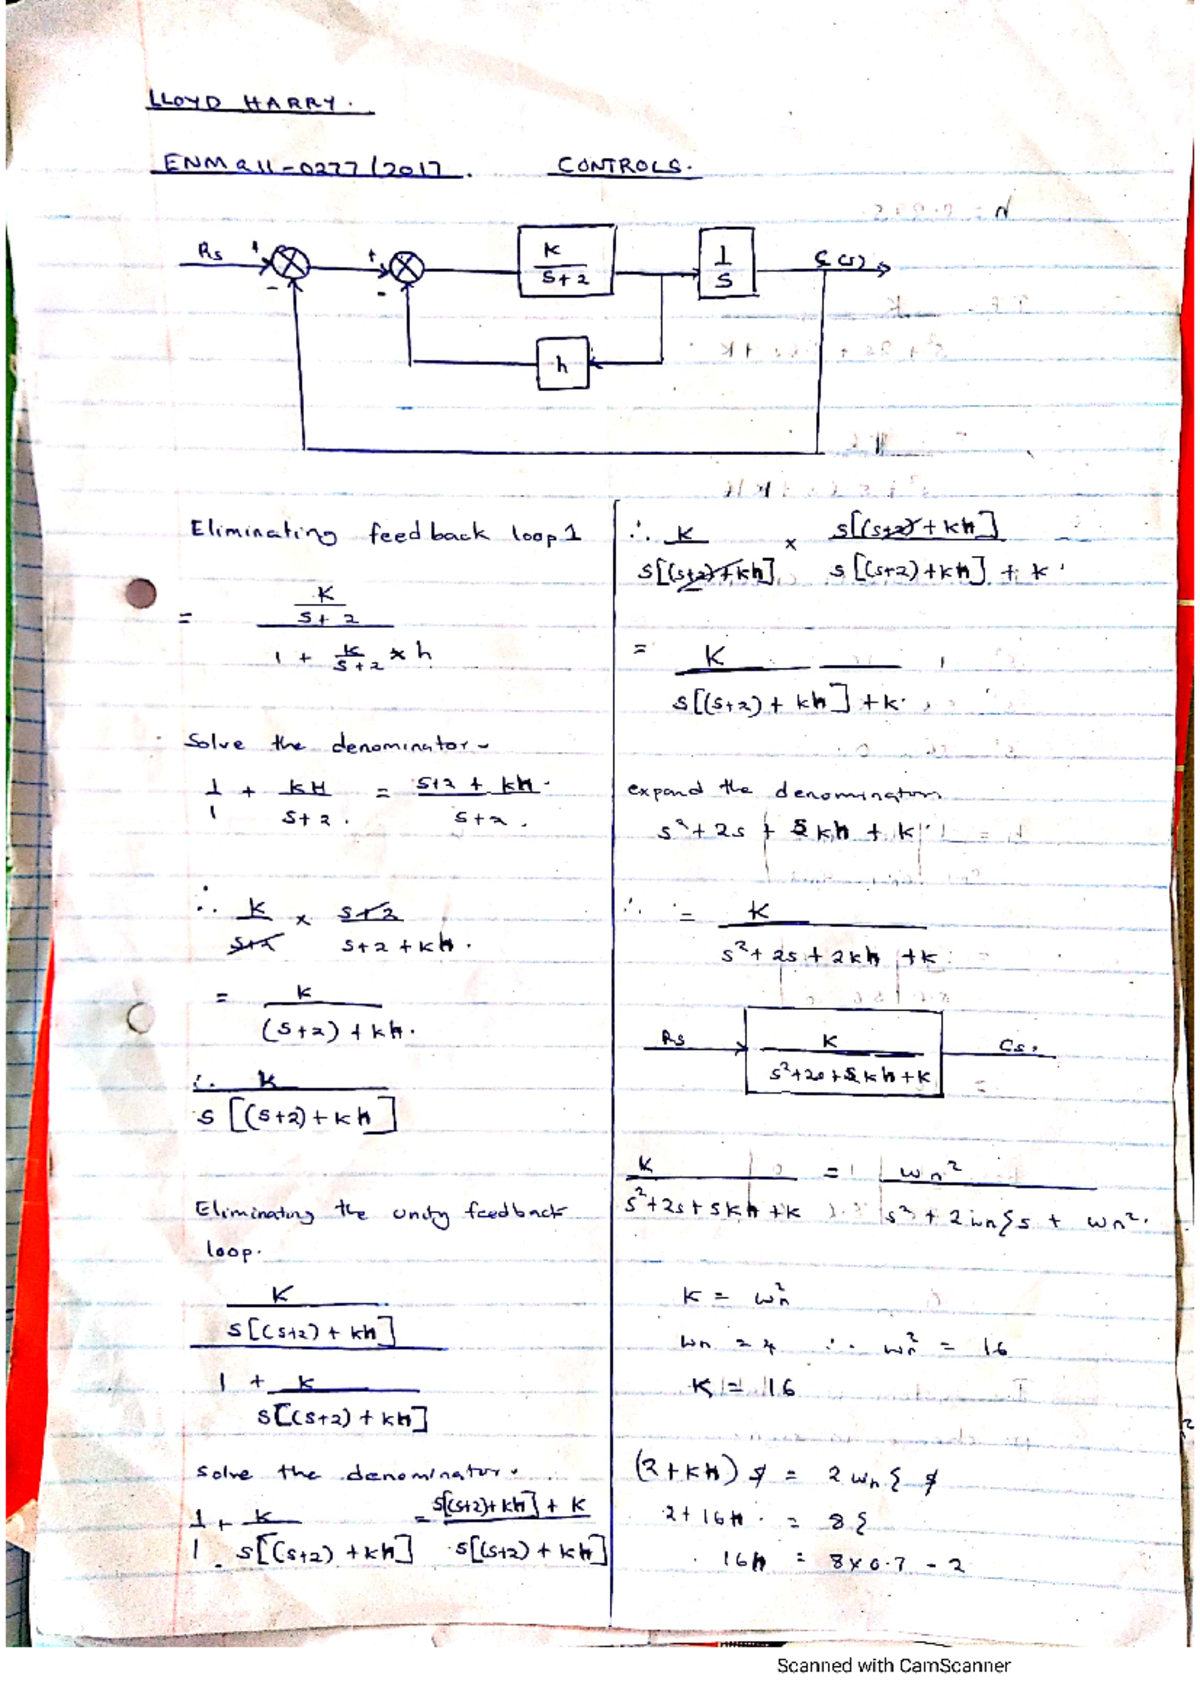 LLOYD HARRY.
ENM211-0277/2017. CONTROLS.
Rs + - + - K/(S+2) 1/S C(s)
h
Eliminating feedback loop 1
= (K/(S+2)) / (1 + K/(S+2) × h)
Solve the denominator
1/1 + KH/(S+2) = (S+2+kh)/(S+2)
∴ K/(S+2) × (S+2)/(S+2+kh)
= K/((S+2)+kh)
∴ K/(S[(S+2)+kh])
Eliminating the unity feedback
loop.
K/(S[(S+2)+kh])
1 + K/(S[(S+2)+kh])
Solve the denominator.
1/1 + K/(S[(S+2)+kh]) = (S[(S+2)+kh]+K)/(S[(S+2)+kh])
∴ K/(S[(S+2)+kh]) × (S[(S+2)+kh])/(S[(S+2)+kh]+K)
= K/(S[(S+2)+kh]+K)
expand the denominator
S²+2S+Skh+K
∴ = K/(S²+2S+2kh+K)
Rs K/(S²+2S+Skh+K) Cs.
K/(S²+2S+Skh+K) = ωn²/(S²+2ωnξS+ωn²)
K = ωn²
ωn = 4 ∴ ωn² = 16
K = 16
(2+Kh)S = 2ωnξS
2+16h = 8ξ
16h = 8×0.7-2
Scanned with CamScanner